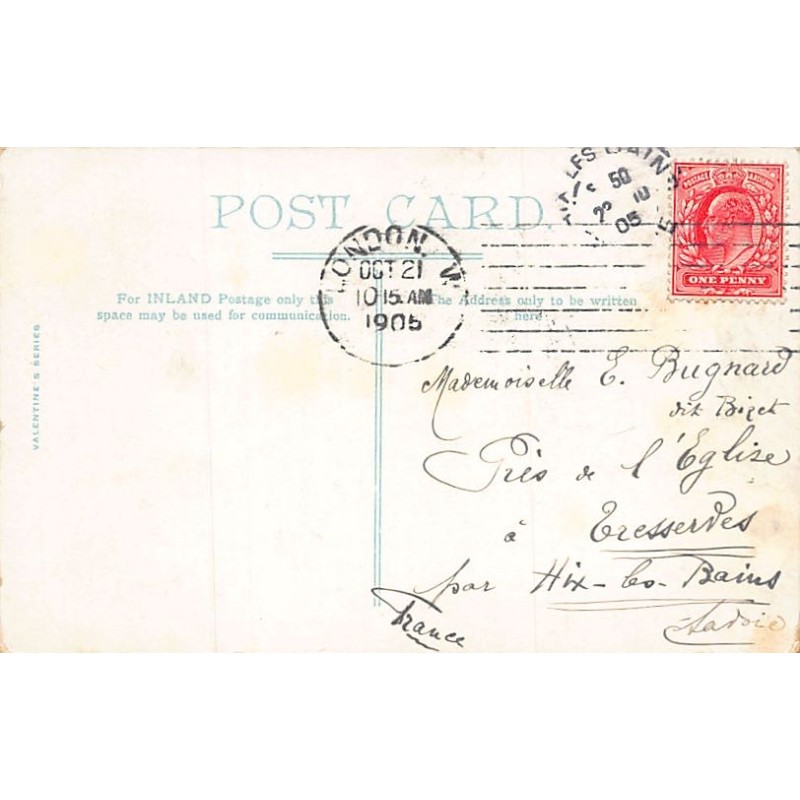 POST CARD.
For INLAND Postage only this
space may be used for communication.
The Address only to be written
here.
VALENTINE'S SERIES
LONDON. W.
OCT 21
10 15 AM
1905
50
10
05
ONE PENNY
Mademoiselle E. Bugnard
dit Bizet
Près de l'Eglise
à Tresserves
par Aix-les-Bains
Savoie
France